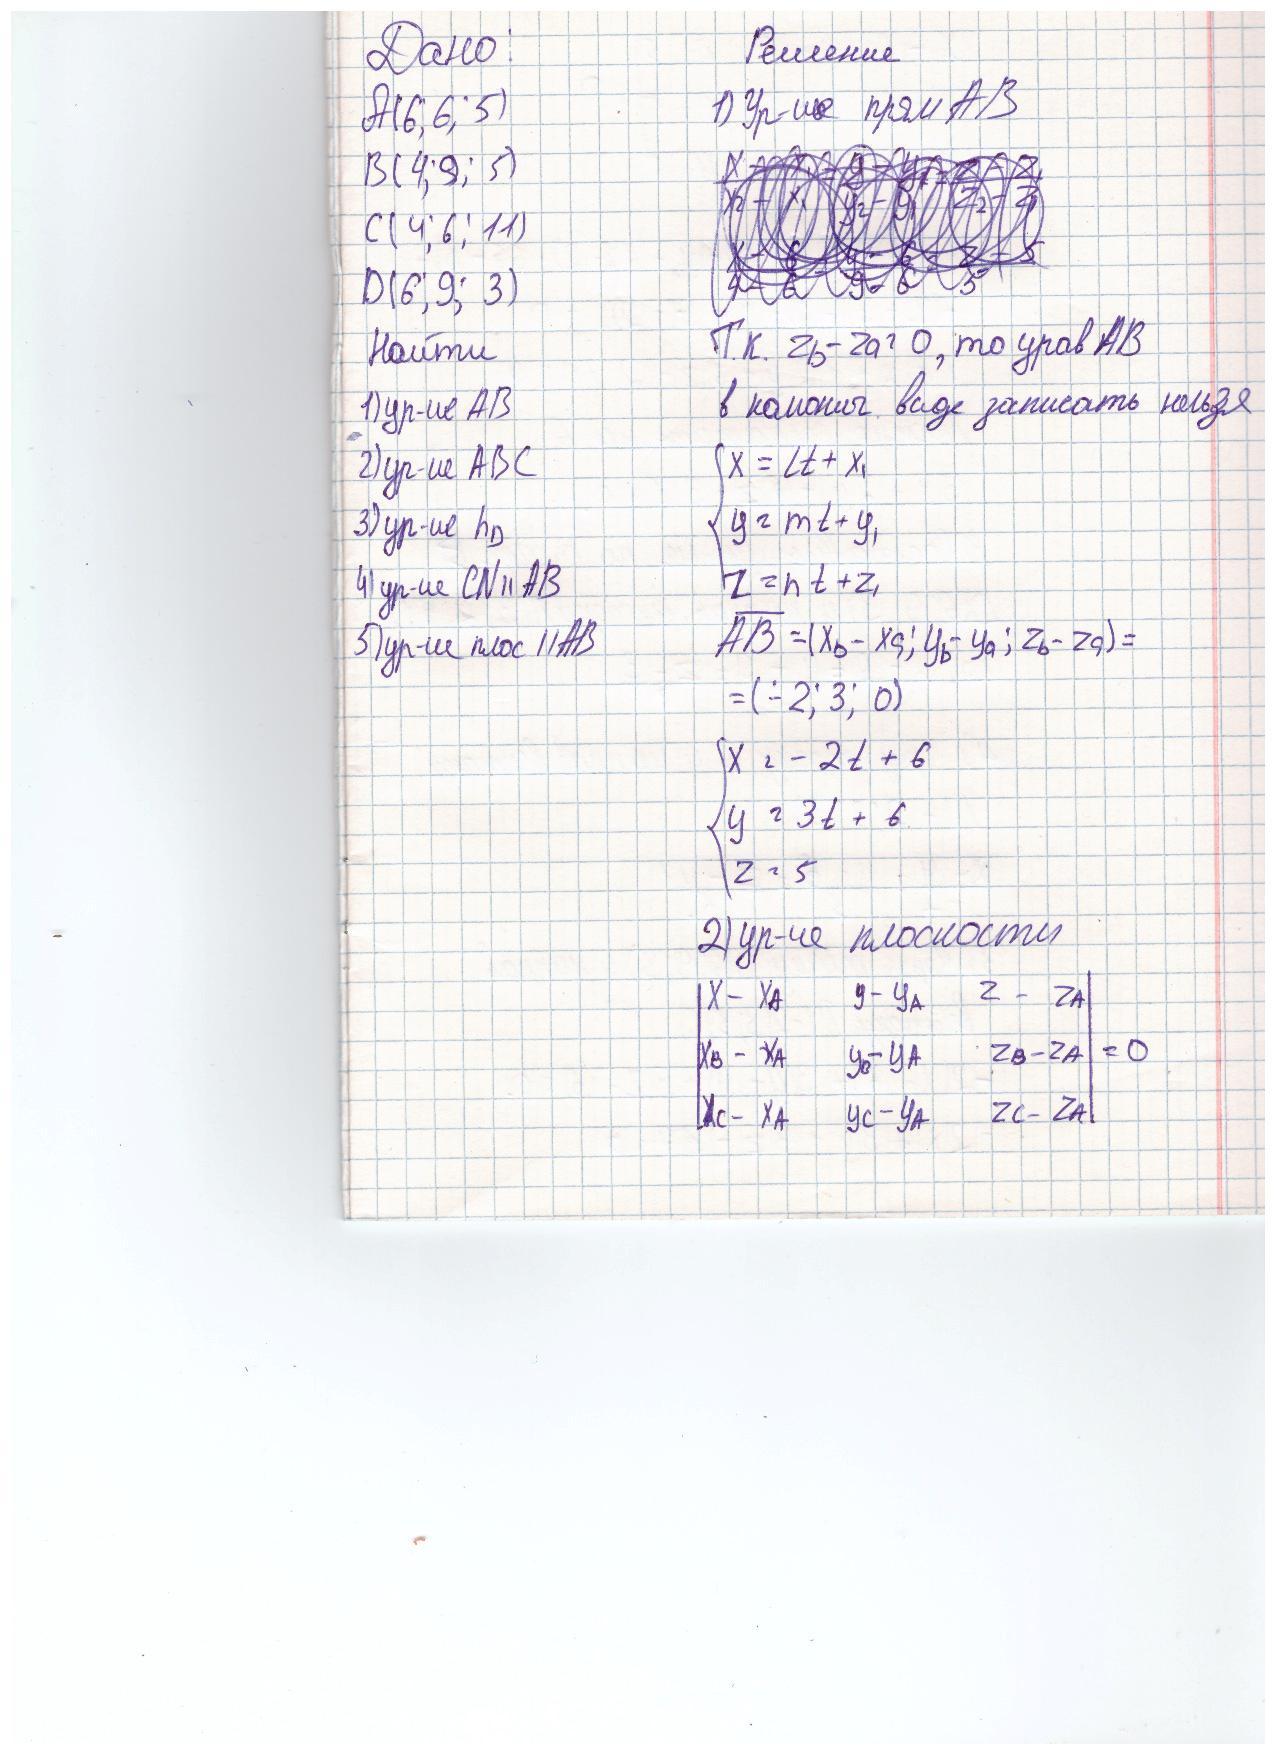 Дано:
A(6; 6; 5)
B(4; 9; 5)
C(4; 6; 11)
D(6; 9; 3)
Найти
1) ур-ие AB
2) ур-ие ABC
3) ур-ие hD
4) ур-ие CN || AB
5) ур-ие плос || AB
Решение
1) Ур-ие прям AB
Т.к. zb - za = 0, то урав AB
в канонич. виде записать нельзя
x = lt + x1
y = mt + y1
z = nt + z1
AB = (xb - xa; yb - ya; zb - za) =
= (-2; 3; 0)
x = -2t + 6
y = 3t + 6
z = 5
2) ур-ие плоскости
|x - xA y - yA z - zA|
|xB - xA yB - yA zB - zA| = 0
|xC - xA yC - yA zC - zA|